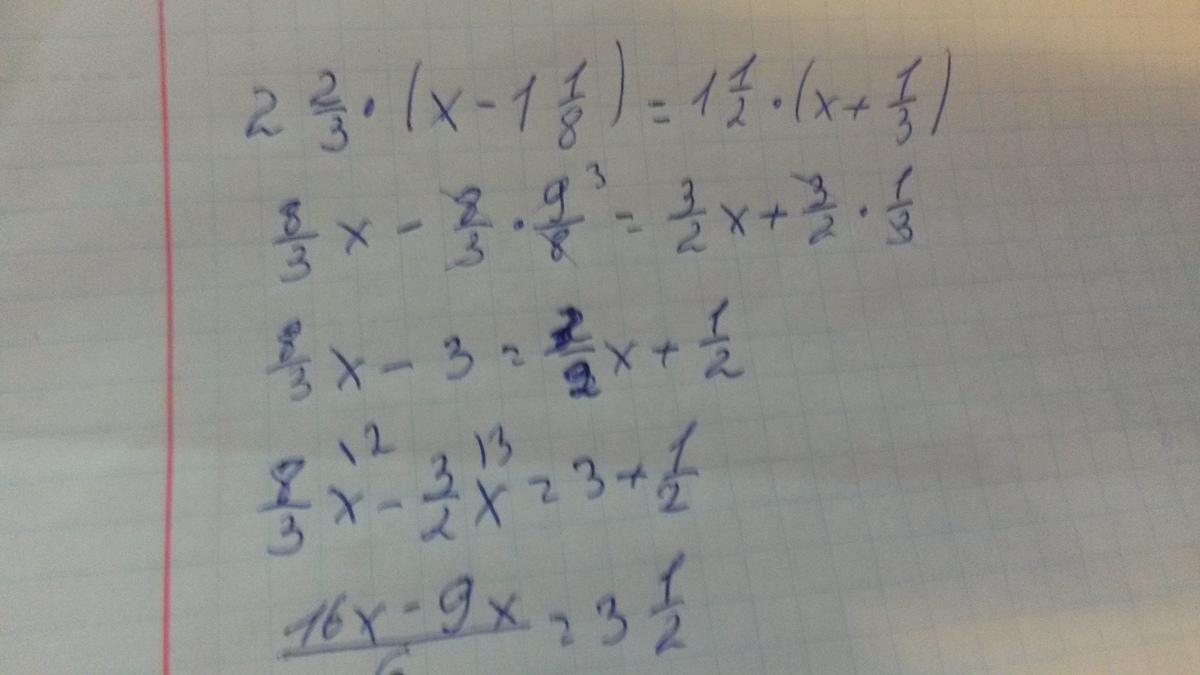 2 2/3 · (x - 1 1/8) = 1 1/2 · (x + 1/3)
8/3 x - 8/3 · 9/8 3 = 3/2 x + 3/2 · 1/3
8/3 x - 3 = 3/2 x + 1/2
8/3 x \2 - 3/2 x \3 = 3 + 1/2
16x - 9x / 6 = 3 1/2